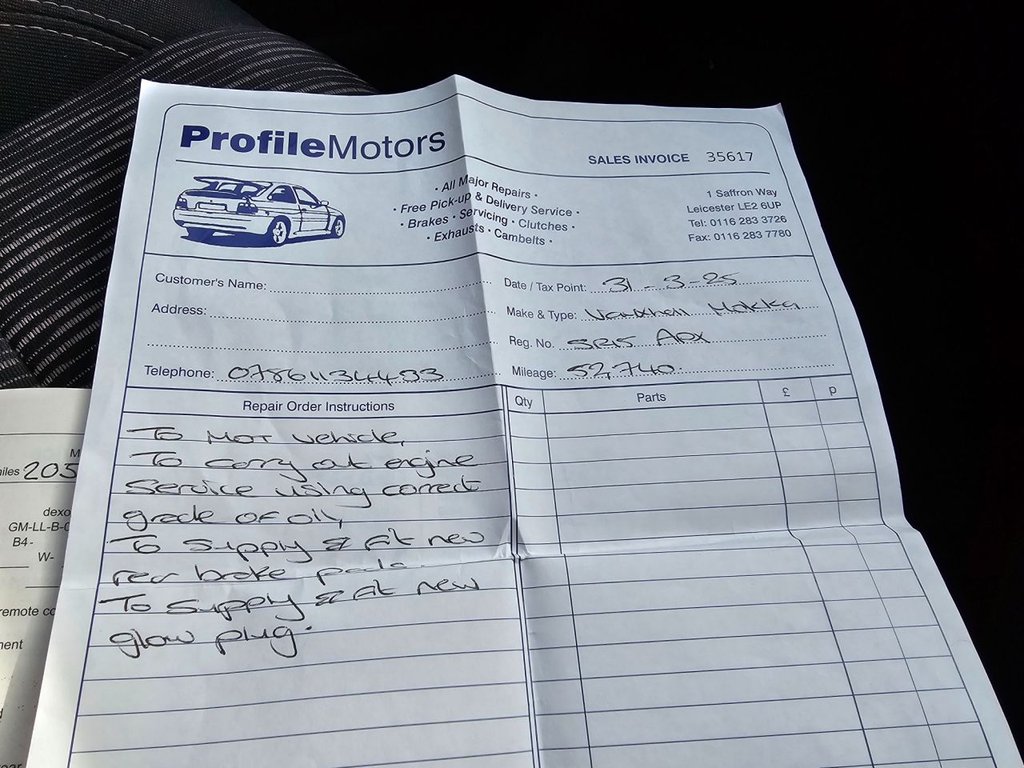 ProfileMotors
SALES INVOICE 35617
· All Major Repairs ·
· Free Pick-up & Delivery Service ·
· Brakes · Servicing · Clutches ·
· Exhausts · Cambelts ·
1 Saffron Way
Leicester LE2 6UP
Tel: 0116 283 3726
Fax: 0116 283 7780
Customer's Name:
Address:
Telephone: 07861134493
Date / Tax Point: 31-3-25
Make & Type: Vauxhall Mokka
Reg. No. SR15 AOX
Mileage: 52,740.
Repair Order Instructions
To MOT vehicle,
To carry out engine
service using correct
grade of oil,
To supply & fit new
rear brake pads.
To supply & fit new
glow plug.
Qty Parts £ p
205
dexo
GM-LL-B-0
B4-
W-